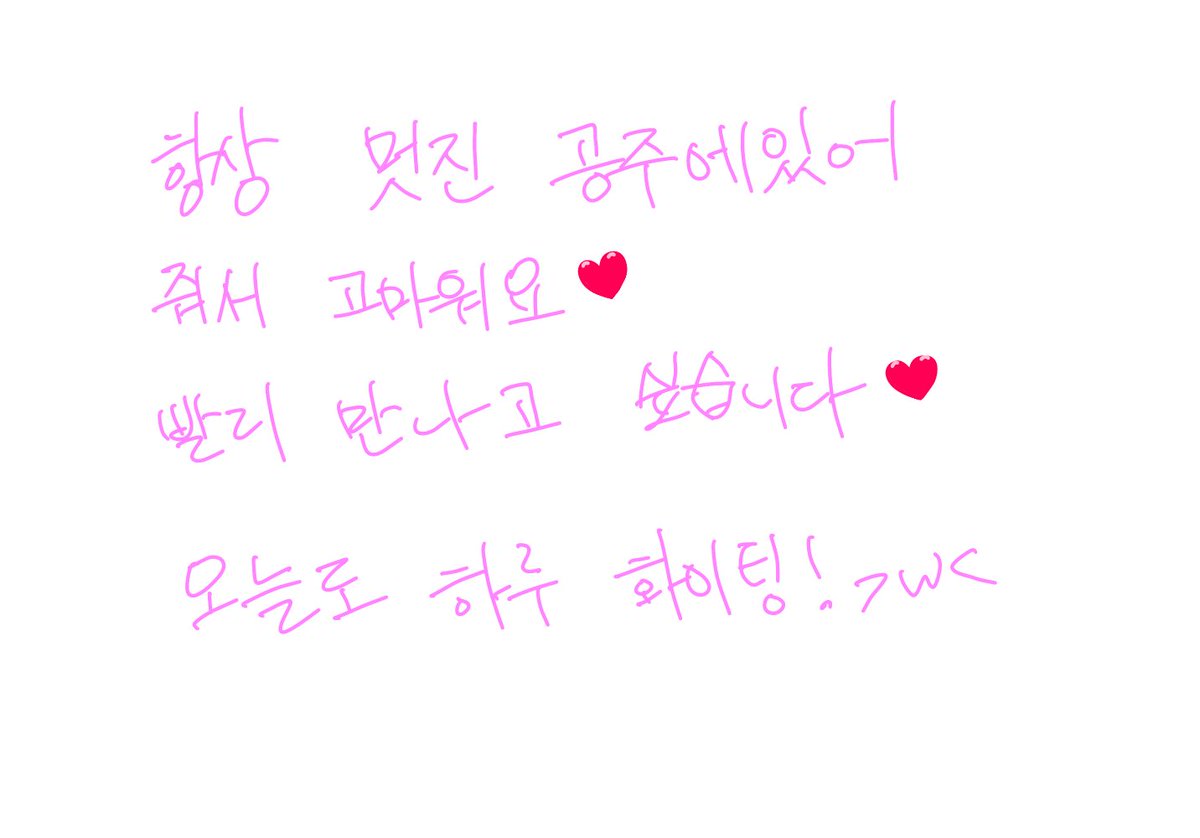 항상 멋진 공주에있어
줘서 고마워요❤
빨리 만나고 싶습니다❤
오늘도 하루 화이팅! >w<